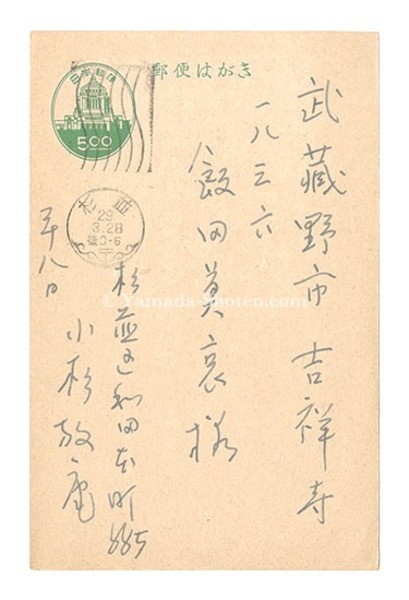 郵便はがき
日本郵便
5.00
杉並
29
3.28
後0-6
武藏野市吉祥寺
一八三六
飯田莫哀様
杉並区和田本町885
小杉放庵
廿八日
© Yamada-Shoten.com